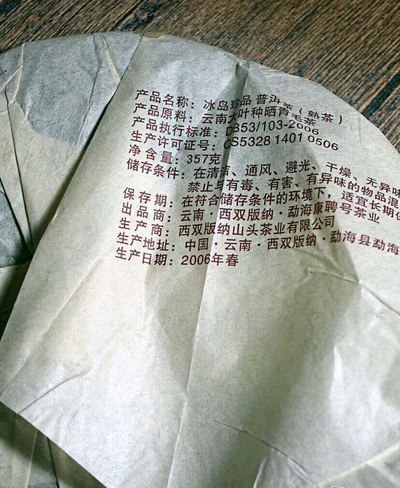 产品名称：冰岛珍品 普洱茶（熟茶）
产品原料：云南大叶种晒青毛茶
产品执行标准：DB53/103-2006
生产许可证号：CS5328 1401 0506
净 含 量：357克
储存条件：在清洁、通风、避光、干燥、无异味
禁止与有毒、有害、有异味的物品混
保 存 期：在符合储存条件的环境下，适宜长期
出 品 商：云南·西双版纳·勐海康聘号茶业
生 产 商：西双版纳山头茶业有限公司
生产地址：中国·云南·西双版纳·勐海县勐海
生产日期：2006年春